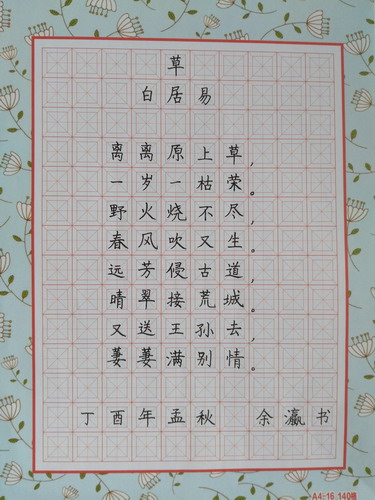 草
白居易
离离原上草，
一岁一枯荣。
野火烧不尽，
春风吹又生。
远芳侵古道，
晴翠接荒城。
又送王孙去，
萋萋满别情。
丁酉年孟秋 余瀛书
A4-16 140格